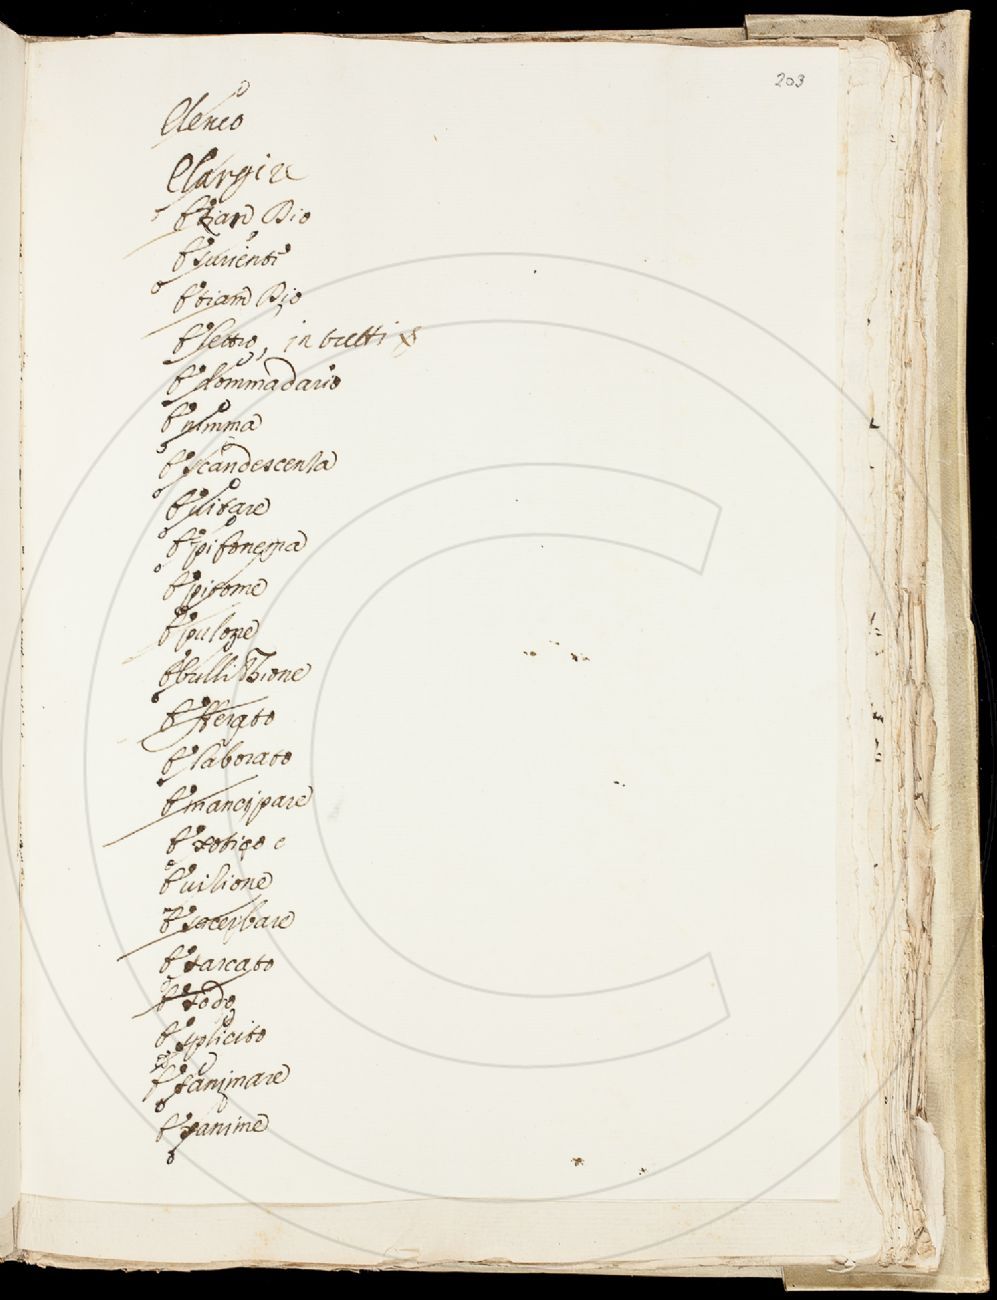 203
Elenco
Elargire
Etian Dio
Esurienti
Etiam Dio
Eletto, in tutti
Edommadario
Enimma
Escandescenza
Evitare
Epifonema
Epitome
Epulone
Ebullizione
Efferato
Elaborato
Emancipare
Exotico e
Evilione
Esacerbare
Exarcato
Exodo
Explicito
Exanimare
Exanime